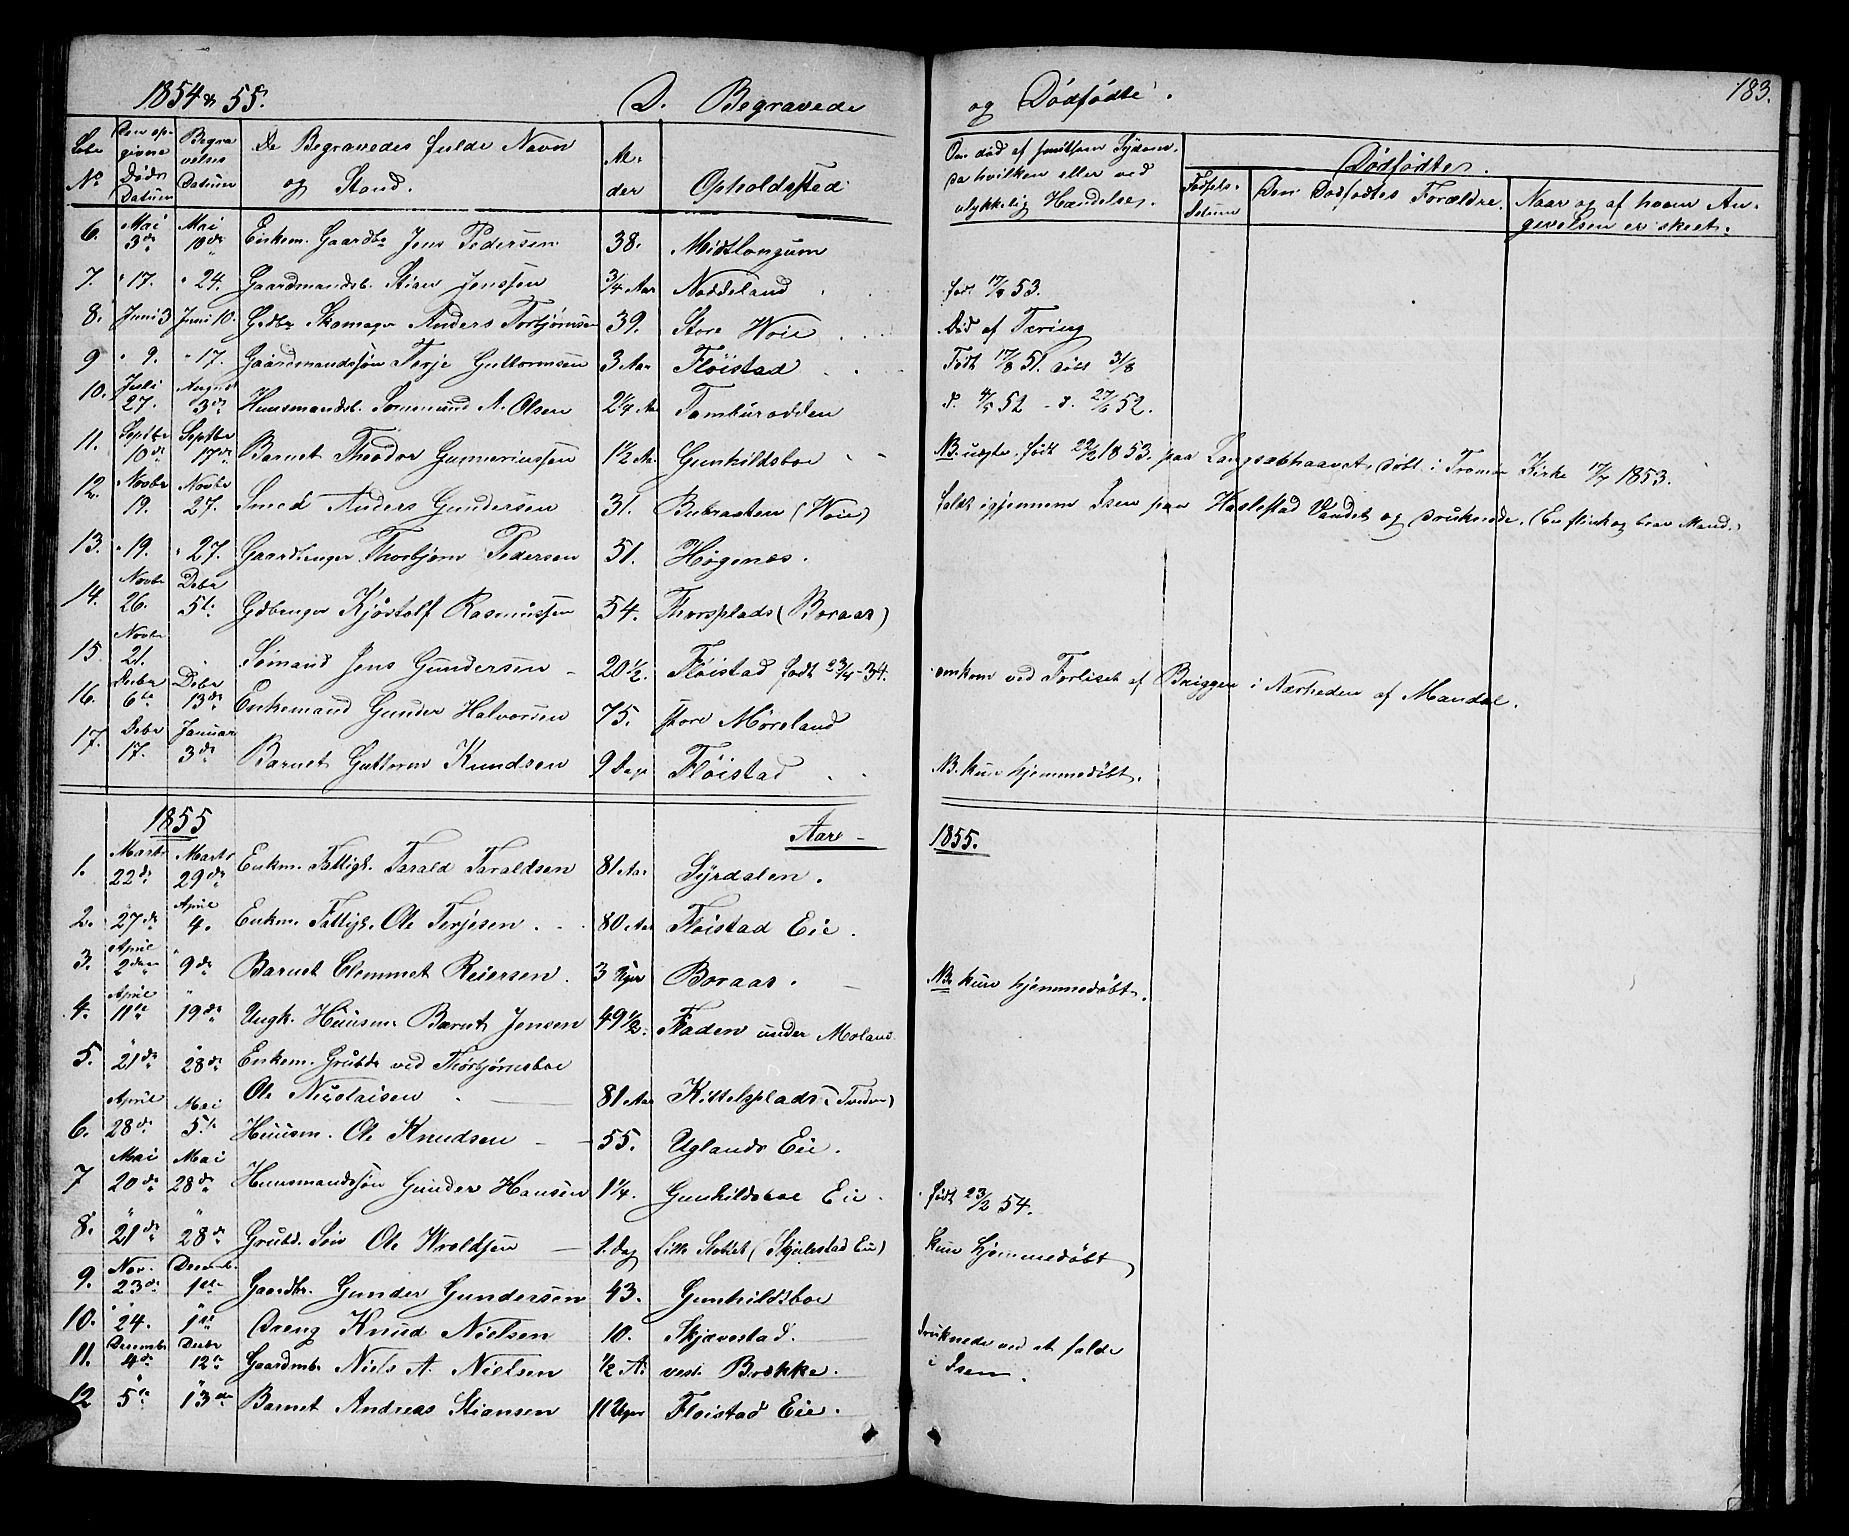 1854 & 55.
D. Begravede
og Dødfødte.
183.
Løbe No
Den opgivne Døds Datum
Begravelses Datum
De Begravedes fulde Navn og Stand.
Alder
Opholdssted
Om død af smitsom Sygdom, da hvilken eller ved ulykkelig Hændelse.
Dødfødte.
Fødsels-Datum
Den Dødfødtes Forældre.
Naar og af hvem Angivelsen er skeet.
6. Mai 3de Mai 10de Enkem. Gaardbr Jens Pedersen 38. Midtlongum
7. " 17. " 24. Gaardmandsb. Stian Jenssen 3/4 Aar Noddeland født 17/9 53.
8. Juni 3 Juni 10. Gdbr Skomager Anders Torbjørnsen 39. Store Woie Død af Tæring
9 " 9. " 17. Gaardmandssøn Terje Guttormsen 3 Aar Fløistad Født 17/8 51. døbt 31/8
10. Juli 27. August 3de Huusmandsb. A. Olsen 2 1/4 Aar Tamburodden
11. Septbr 10de Septbr 17de Barnet Theodor Gunneriussen 1 1/2 Aar Gunhildsboe NB. uægte, født 22/2 1853. paa døbt i Tromø Kirke 17/7 1853.
12. Novbr 19. Novbr 27. Smed Anders Gundersen 31. (Woie) faldt igjennem Isen paa Haslestad Vandet og druknede. (En flink og brav Mand.)
13. " 19. " 27. Gaardbruger Thorbjørn Pedersen 51. Høgenes.
14. Novbr 26. Debr 5te Gdbruger Kjøstolf Rasmussen 54. Thorsplads (Boraas)
15. Novbr 21. Sømand Jens Gundersen 20 1/2. Fløistad født 23/4-34. omkom ved Forliset af Briggen i Nærheden af Mandal.
16. Decbr 6te Debr 13de Enkemand Gunder Halvorsen 75. store Møreland
17. Debr 17. Januar 3de Barnet Guttorm Knudsen 9 Dage Fløistad NB. kun hjemmedøbt.
1855
Aar
1855.
1. Marts 22de Marts 29de Enkem. Fattigl. Tarald Taraldsen 81 Aar Syrdalen.
2. " 27de April 4. Enkem. Fattigl. Ole Terjesen 80 Aar Fløistad Eie.
3. April 2den " 9de Barnet Clemmet Reiersen. 3 Uger Boraas. NB. kun hjemmedøbt.
4. April 11te " 19de Ungk. Huusm. Barnt Jensen 49 1/2. Fladen under Moland
5. " 21de " 28de Enkem. Grubb. ved Thorbjørnsboe
Ole Nicolaisen 81 Aar Kittelsplads (Tveden)
6. April 28de Mai 5te Huusm. Ole Knudsen 55. Uglands Eie.
7 Mai 20de Mai 28de Huusmandssøn Gunder Hansen 1 1/4. Gunhildsboe Eie født 23/2 54.
8. " 21de " 28de Grubb. Søn Ole Wroldsen 1. Dag Lille Slottet (Skjulestad Eie) kun hjemmedøbt
9. Nov. 23de Decemb. 1ste Gaardbr. Gunder Gundersen 43. Gunhildsboe
10. " 24. " 1ste Dreng Knud Nielsen 10. Skjævestad. druknede ved at falde
i Isen.
11. Decembr 4de Decbr 12te Gaardmbr Niels A. Nielsen 1/2 A. vest. Brække.
12 " 5te " 13de Barnet Andreas Stiansen 11 Uger Fløistad Eie.